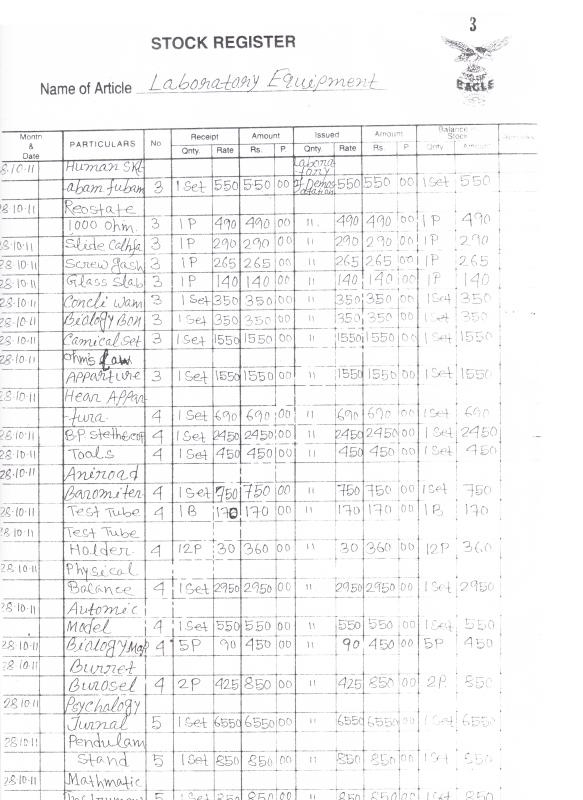 3
STOCK REGISTER
EAGLE
Name of Article Laboratory Equipment
Month & Date PARTICULARS No Receipt Amount Issued Amount Balance in Stock Remarks
Qnty. Rate Rs. P. Qnty. Rate Rs. P Qnty. Amount
28.10.11 Human Skl- Labora-
tory
abam fubam 3 1 Set 550 550 00 If Demos 550 550 00 1 Set 550
tation
28.10.11 Reostate
1000 ohm. 3 1P 490 490 00 11. 490 490 00 1P 490
28.10.11 Slide Calhpa 3 1P 290 290 00 11 290 290 00 1P 290
28.10.11 Screw gash 3 1P 265 265 00 11 265 265 00 1P 265
28.10.11 Glass Slab 3 1P 140 140 00 11 140 140 00 1P 140
28.10.11 Concli Wam 3 1 Set 350 350 00 11 350 350 00 1 Set 350
28.10.11 Biology Bon 3 1 Set 350 350 00 11 350 350 00 1 Set 350
28.10.11 Camical Set 3 1 Set 1550 1550 00 11 1550 1550 00 1 Set 1550
28.10.11 Ohm's Law
Apparture 3 1 Set 1550 1550 00 11 1550 1550 00 1 Set 1550
28.10.11 Hear Appar-
tura 4 1 Set 690 690 00 11 690 690 00 1 Set 690
28.10.11 B.P. Stethscop 4 1 Set 2450 2450 00 11 2450 2450 00 1 Set 2450
28.10.11 Tools 4 1 Set 450 450 00 11 450 450 00 1 Set 450
28.10.11 Aniroad
Baromiter 4 1 Set 750 750 00 11 750 750 00 1 Set 750
28.10.11 Test Tube 4 1 B 170 170 00 11 170 170 00 1 B 170
Test Tube
Holder 4 12P 30 360 00 11 30 360 00 12P 360
28.10.11 Physical
Balance 4 1 Set 2950 2950 00 11 2950 2950 00 1 Set 2950
28.10.11 Automic
Model 4 1 Set 550 550 00 11 550 550 00 1 Set 550
28.10.11 Biology Map 4 5P 90 450 00 11 90 450 00 5P 450
28.10.11 Burret
Burosel 4 2P 425 850 00 11 425 850 00 2P 850
28.10.11 Psychalogy
Jurnal 5 1 Set 6550 6550 00 11 6550 6550 00 1 Set 6550
28.10.11 Pendulam
Stand 5 1 Set 850 850 00 11 850 850 00 1 Set 850
28.10.11 Mathmatic